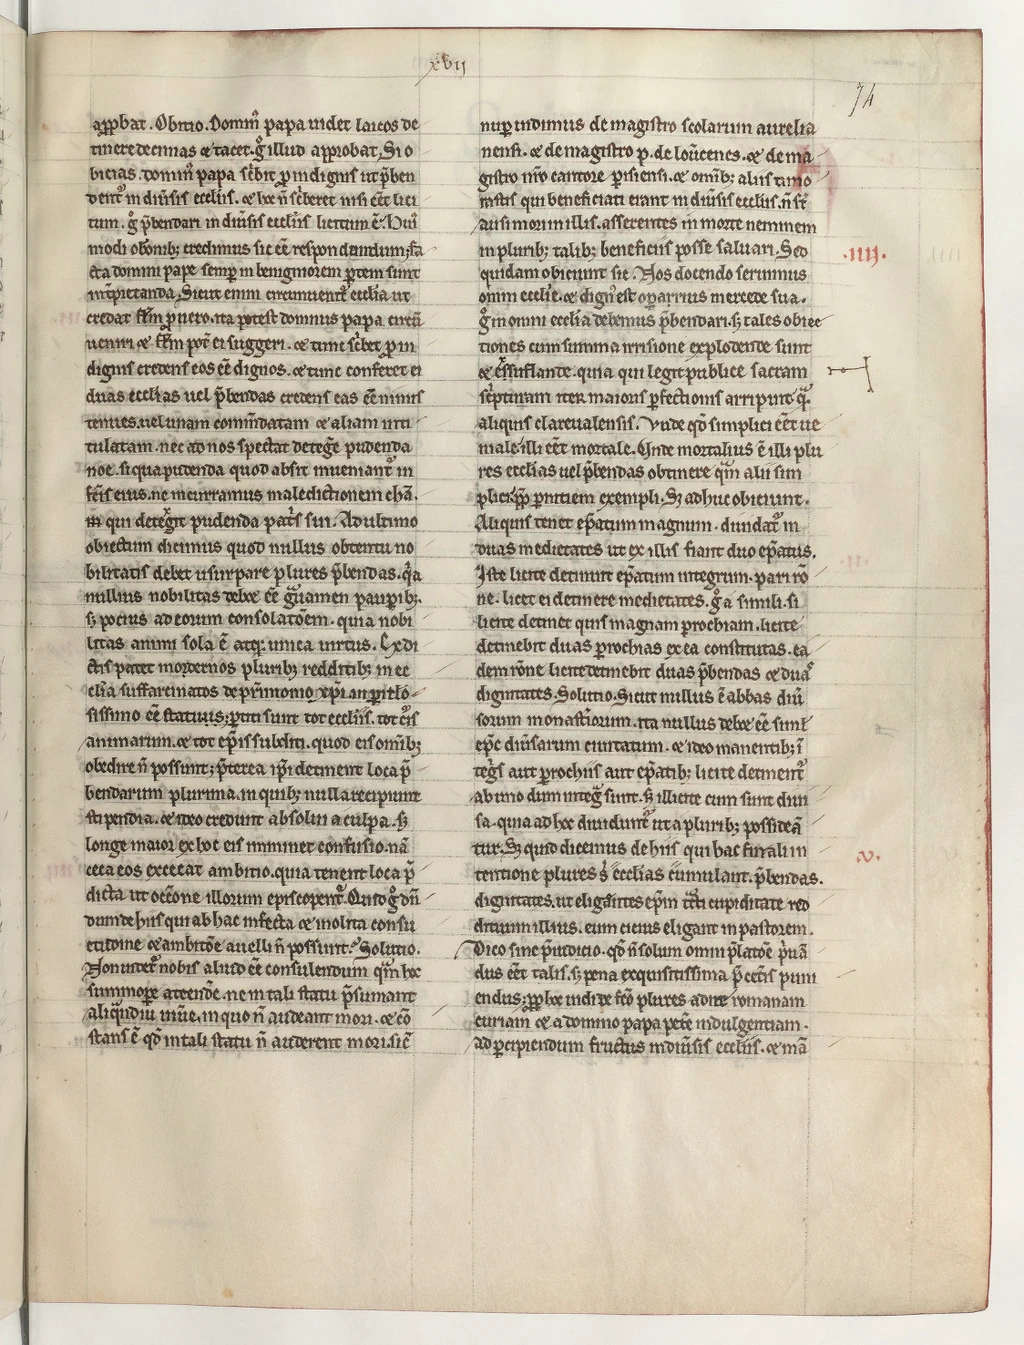 xvij
74
app̄bat. Obitio. Domin̄ papa uidet laicos de
tinere decimas & tacet. g̊ illud app̄robat. Si o
bicias. domin̄ papa sc̄bit p̱ indignis ut p̄ben
dent᷑ in diu̾sis eccliis. & hoc n̄ sc̄beret nisi eēt lici
tum. g̊ p̄bendari in diu̾sis eccliis licitum ē. Hui᷒
modi obōnib; credimus sic eē respondendum; fa
cta domini pape semp̱ in benigniorem p̱tem sunt
int̾pietanda. Sicut enim circumuenit᷑ ecclia ut
credat fl̄m p̱ uero. ita potest domnus papa circū
ueniri & fl̄m pot̄ ei suggeri. & tunc sc̄bet p̱ in
dignis credens eos eē dignos. & tunc conferet ei
duas ecclias uel p̄bendas credens eas eē minus
tenues. uel unam com̄datam & aliam inti
tulatam. nec ad nos spectat deteg̾e pudenda
noe. si qua pudenda quod absit inueniant᷑ in
fc̄is eius. ne incurramus maledictionem cha̅.
qui detegit pudenda pat̾s sui. Ad ultimo
obiectum dicimus quod nullus obtentu no
bilitatis debet usurpare plures p̄bendas. q̾a
nullius nobilitas debet eē g̾uamen paup̱ib;.
s; pocius ad eorum consolatōem. quia nobi
litas animi sola ē atq; unica uirtus. Ex di
ctis patet modernos plurib; redditib; in ec
clia suffarcinatos de pat̾monio xp̄i in p̱iclo
sissimo eē statu; p̱titi sunt tot eccliis. tot c̄is
animarum. & tot ep̄is subditi. quod eis omib;
obedire n̄ possunt; p̄terea ip̄i detinent loca p̄
bendarum plurima. in quib; nulla recipiunt
stipendia. & ideo credunt absolui a culpa. s;
longe maior ex hoc eis imminet confusio. nā
ceca eos excecat ambitio. quia tenent loca p̄
dicta ut occ̄one illorum episcopent᷑. Quid g̊ dn̄
dum de hiis qui ab hac infecta & inolita consu
etudine & ambitōe auelli n̄ possunt. Solutio.
Non uidet᷑ nobis aliud eē consulendum q̾m hoc
summop̱e attende. ne in tali statu p̄sumant
aliq̾ndiu uiu̾e. in quo n̄ audeant mori. & cō
stans ē qd̄ in tali statu n̄ auderent mori. sic̄
nup̱ uidimus de magistro scolarum aurelia
nensi. & de magistro p. de lou̾cenes. & de ma
gistro nr̄o cantore p̱isiensi. & omib; aliis timo
ratis qui beneficiati erant in diu̾sis eccliis. n̄ st̄
ausi mori in illis. asserentes in morte neminem
in plurib; talib; beneficiis posse saluari. Sed
.iiij.
quidam obiciunt sic. Nos docendo seruimus
omni ecclie. & dign᷒ est op̱arius mercede sua.
g̊ in omni ecclia debemus p̄bendari. s; tales obiec
tiones cum summa irrisione explodende sunt
& exsufflande. quia qui legit publice sacram
sc̾pturam iter maioris p̱fectionis arripuit q̾.
aliquis clareualensis. Vnde qd̄ simplici eēt ue
niale. illi eēt mortale. Vnde mortalius ē illi plu
res ecclias uel p̄bendas obtinere q̾m alii sim
plici p̱p̱ p̱nitiem exempli. S; adhuc obiciunt.
Aliquis tenet ep̄atum magnum. diuidat᷑ in
duas medietates ut ex illis fiant duo ep̄atus.
Iste licite detinuit ep̄atum integrum. pari rō
ne. licet ei detinere medietates. g̊ a simili. si
licite detinet quis magnam p̱rochiam. licite
detinebit duas p̱rochias ex ea constitutas. ea
dem rōne licite detinebit duas p̄bendas & duas
dignitates. Solutio. Sicut nullus ē abbas diu̾
sorum monast̾iorum. ita nullus debet eē simul
epc̄ diu̾sarum ciuitatum. & ideo manentib; ī
teg̾s aut p̱rochiis aut ep̄atib; licite detinent᷑
ab uno dum integ̾ sunt. s; illicite cum sunt diui
sa. quia ad hoc diuidunt᷑ ut a plurib; possidea̅
.v.
tur. S; quid dicemus de hiis qui hac finali in
tentione plures s; ecclias cumulant. p̄bendas.
dignitates. ut eligentes ep̄m cupiditate red
dituum illius. eum cicius eligant in pastorem.
Dico sine p̄iudicio. qd̄ n̄ solum omni p̄latōe p̾uā
dus eēt talis. s; pena exquisitissima p̄ cet̾is puni
endus; p̱p̱ hoc uidi de fc̄o plures adire romanam
curiam & a domino papa pet̾e indulgentiam.
ad p̱cipiendum fructus in diu̾sis eccliis. & mā